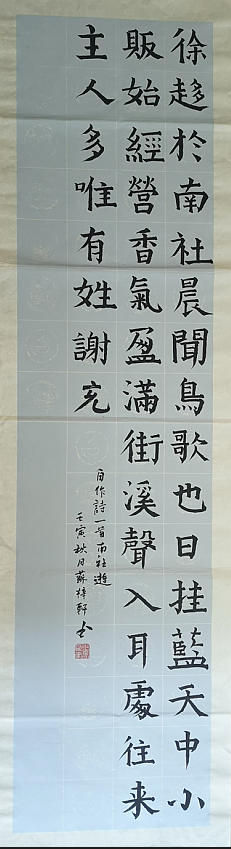 徐趍於南社晨聞鳥歌也日挂藍天中小
販始經營香氣盈滿街溪聲入耳處往来
主人多唯有姓謝充
自作詩一首南社遊
壬寅秋月蘇梓軒书